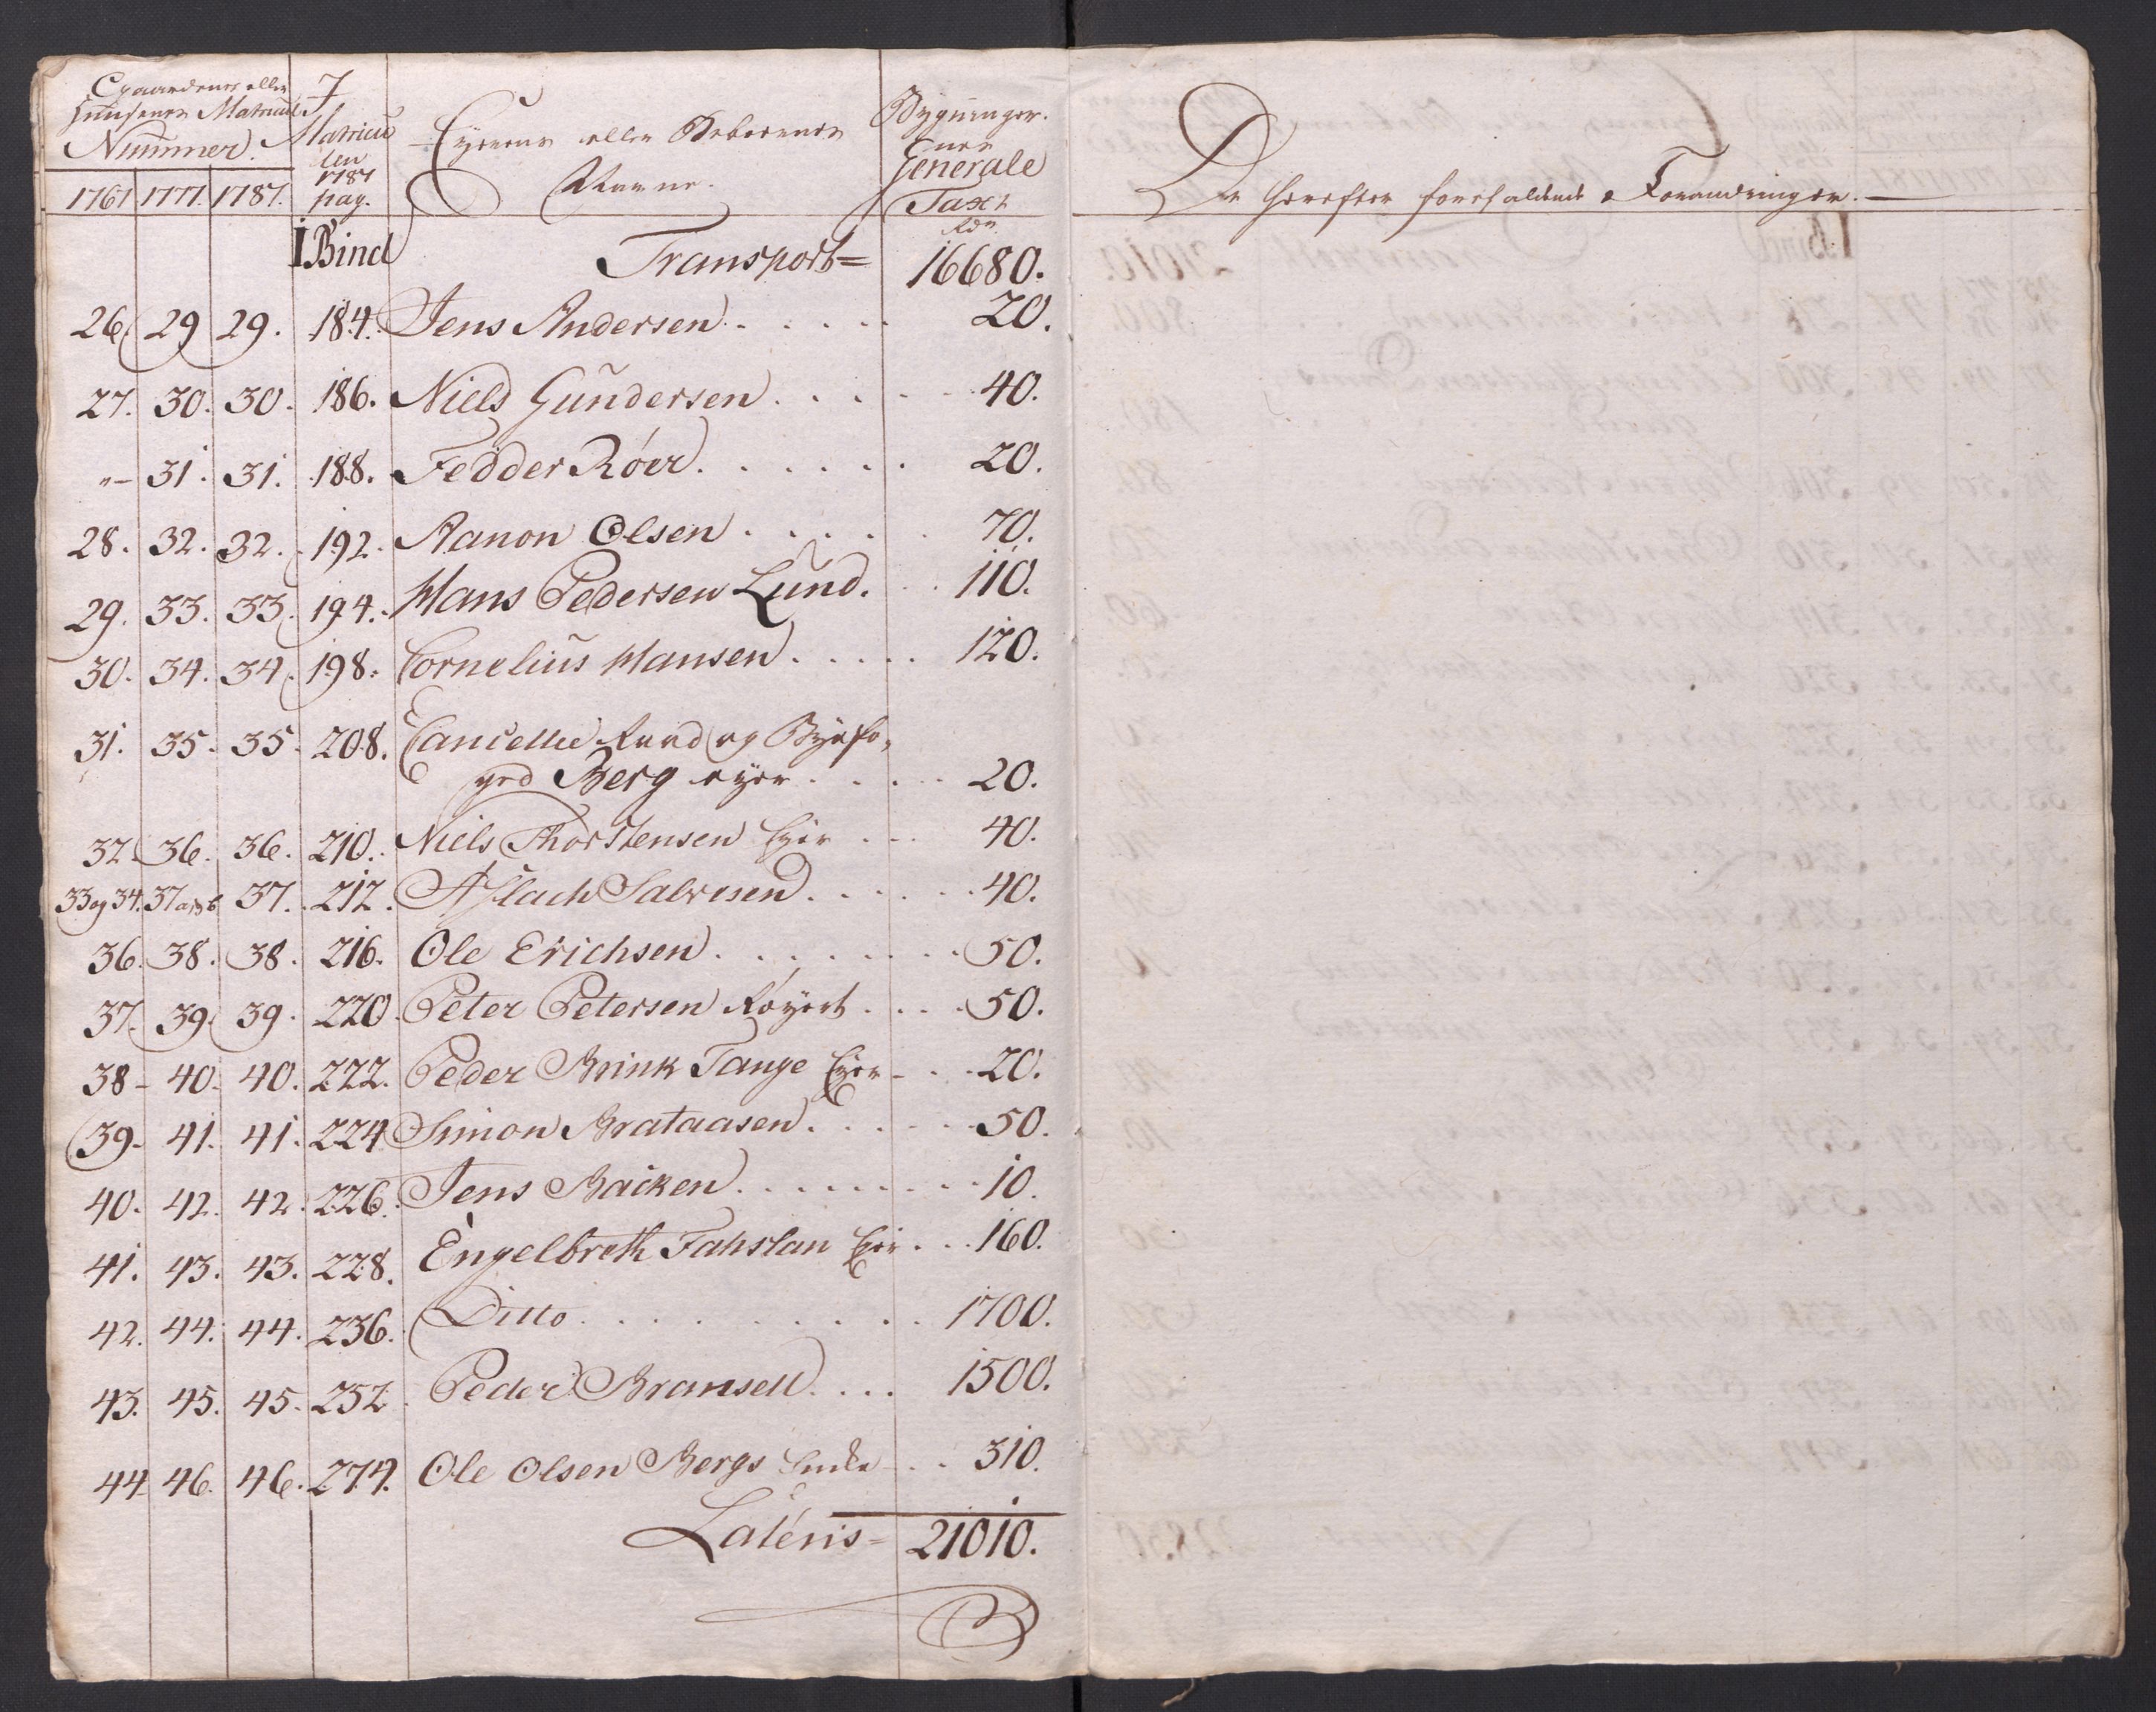 Gaardenes eller
Huusenes Matricul
Nummer.
1767 1777. 1787.
I
Matricu
len
1787
pag.
Eyerens eller Beboerens
Navne.
Bygninger-
nes
Generale
Taxt
Rdr.
I Bind Transport = 16680.
26. 29 29. 184. Jens Andersen . . . . . 20.
27. 30. 30. 186. Niels Gundersen . . . . 40.
"– 31. 31. 188. Fedder Röer . . . . . . 20.
28. 32. 32. 192. Aanon Olsen . . . . . 70.
29. 33. 33. 194. Hans Pedersen Lund. . . 110.
30. 34. 34. 198. Cornelius Hansen . . . . . 120.
31. 35. 35. 208. Cancellie Raad og Byefo-
ged Berg eyer . . . . 20.
32. 36. 36. 210. Niels Thorstensen Eyer . . . 40.
33 og 34. 37 a & b 37. 212. Aslach Salvesen . . . . . 40.
36. 38. 38. 216. Ole Erichsen . . . . . . . . 50.
37. 39. 39. 220. Peter Petersen Röyert . . . . 50.
38 – 40. 40. 222. Peder Brink Tange Eyer – . . 20.
39 – 41. 41. 224 Simon Brataasen . . . . . 50.
40. 42. 42. 226. Jens Backen . . . . . . . . 10.
41. 43. 43. 228. Engelbreth Fahslan Eyer . . . 160.
42. 44. 44. 236. Ditto . . . . . . . . . 1700.
43. 45. 45. 252. Peder Bramsell . . . . 1500.
44 46. 46. 274. Ole Olsen Bergs Enke – . . 310.
Lateris = 21010.
De herefter forefaldende Forandringer. —